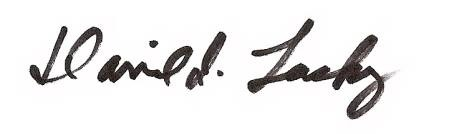 David D. Lasky